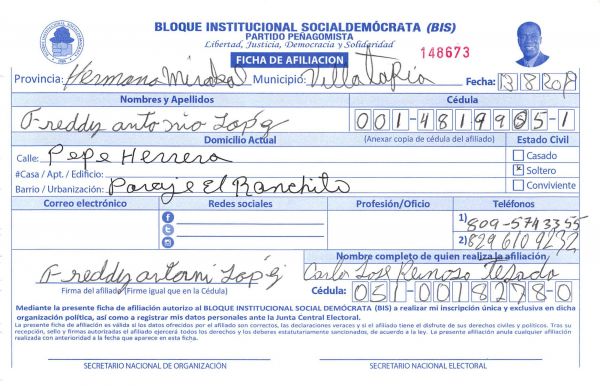 BLOQUE INSTITUCIONAL SOCIALDEMÓCRATA (BIS)
PARTIDO PEÑAGOMISTA
Libertad, Justicia, Democracia y Solidaridad
FICHA DE AFILIACION
148673
Provincia: Hermana Mirabal Municipio: Villa Tapia Fecha: 13/8/2019
Nombres y Apellidos
Cédula
Freddy antonio Lopéz
001-4819965-1
(Anexar copia de cédula del afiliado)
Domicilio Actual
Estado Civil
Calle: Pepe Herrera
Casado
#Casa / Apt. / Edificio:
x Soltero
Barrio / Urbanización: Paraje El Ranchito
Conviviente
Correo electrónico
Redes sociales
Profesión/Oficio
Teléfonos
1) 809-574 3355
2) 829 610 9232
Nombre completo de quien realiza la afiliación
Freddy antoni Lopéz
Carlos José Reinoso Tejada
Firma del afiliado (Firme igual que en la Cédula)
Cédula: 051-0018278-0
Mediante la presente ficha de afiliación autorizo al BLOQUE INSTITUCIONAL SOCIAL DEMÓCRATA (BIS) a realizar mi inscripción única y exclusiva en dicha
organización política, así como a registrar mis datos personales ante la Junta Central Electoral.
La presente ficha de afiliación es válida si los datos ofrecidos por el afiliado son correctos, las declaraciones veraces y si el afiliado tiene el disfrute de sus derechos civiles y políticos. Tras su
recepción, sello y firmas autorizadas el afiliado ejercerá todos los derechos y los deberes estatutariamente sancionados, de acuerdo a la ley. La presente afiliación anula cualquier afiliación
realizada con anterioridad a la fecha que aparece en esta ficha.
SECRETARIO NACIONAL DE ORGANIZACIÓN
SECRETARIO NACIONAL ELECTORAL